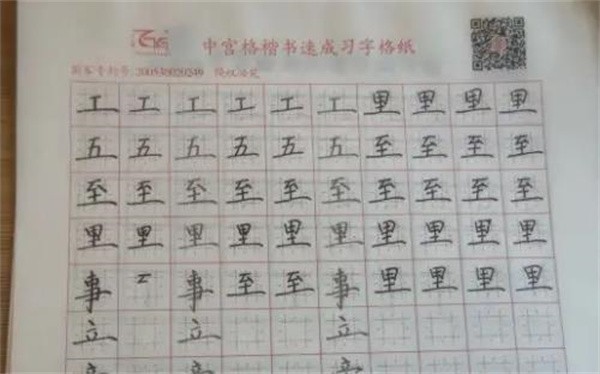 中宫格楷书速成习字格纸
国家专利号:200530020249 侵权必究
工 工 工 工 工 工 里 里 里 里
五 五 五 五 五 五 至 至 至 至
至 至 至 至 至 至 至 至 至 至
里 里 里 里 里 里 里 里 里 里
事 事 至 至 事 里 里 里 里
立 立 立